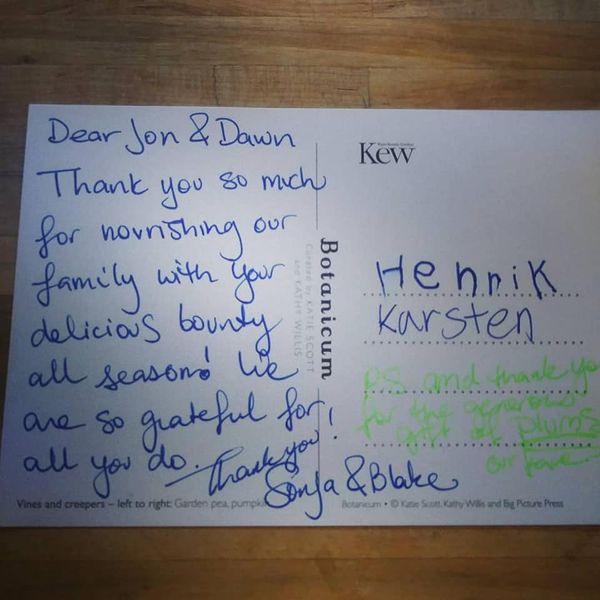 Dear Jon & Dawn
Thank you so much
for nourishing our
family with your
delicious bounty
all season! We
are so grateful for
all you do. Thank you!
Sonja & Blake
Vines and creepers – left to right: Garden pea, pumpki
Botanicum
Curated by KATIE SCOTT
and KATHY WILLIS
Kew
Henrik
Karsten
PS and thank yo
for the generous
gift of plums
our fave
Botanicum • © Katie Scott, Kathy Willis and Big Picture Press